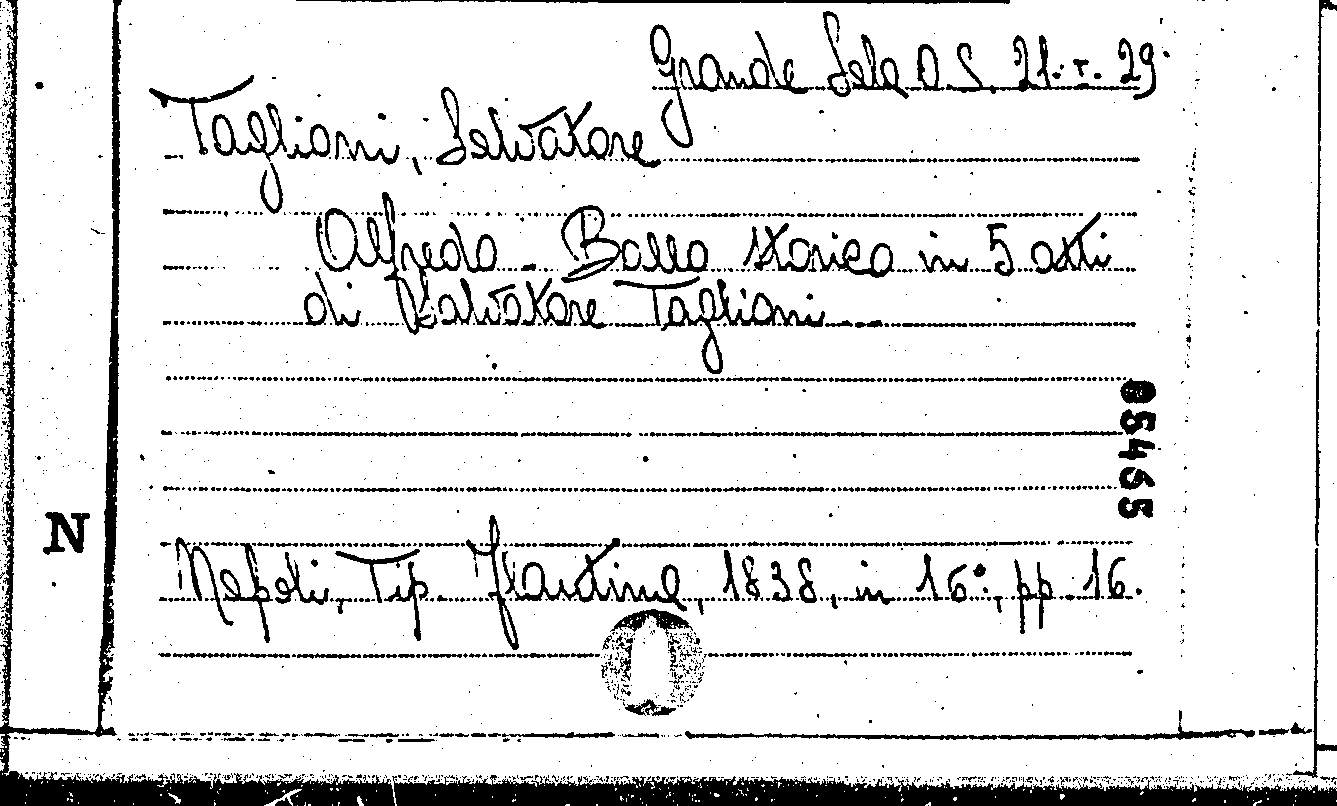 Grande Sala O S. 21. I. 29.
Taglioni, Salvatore
Alfredo - Ballo storico in 5 atti
di Salvatore Taglioni
05465
N
Napoli, Tip. Flautina, 1838, in 16°, pp. 16.